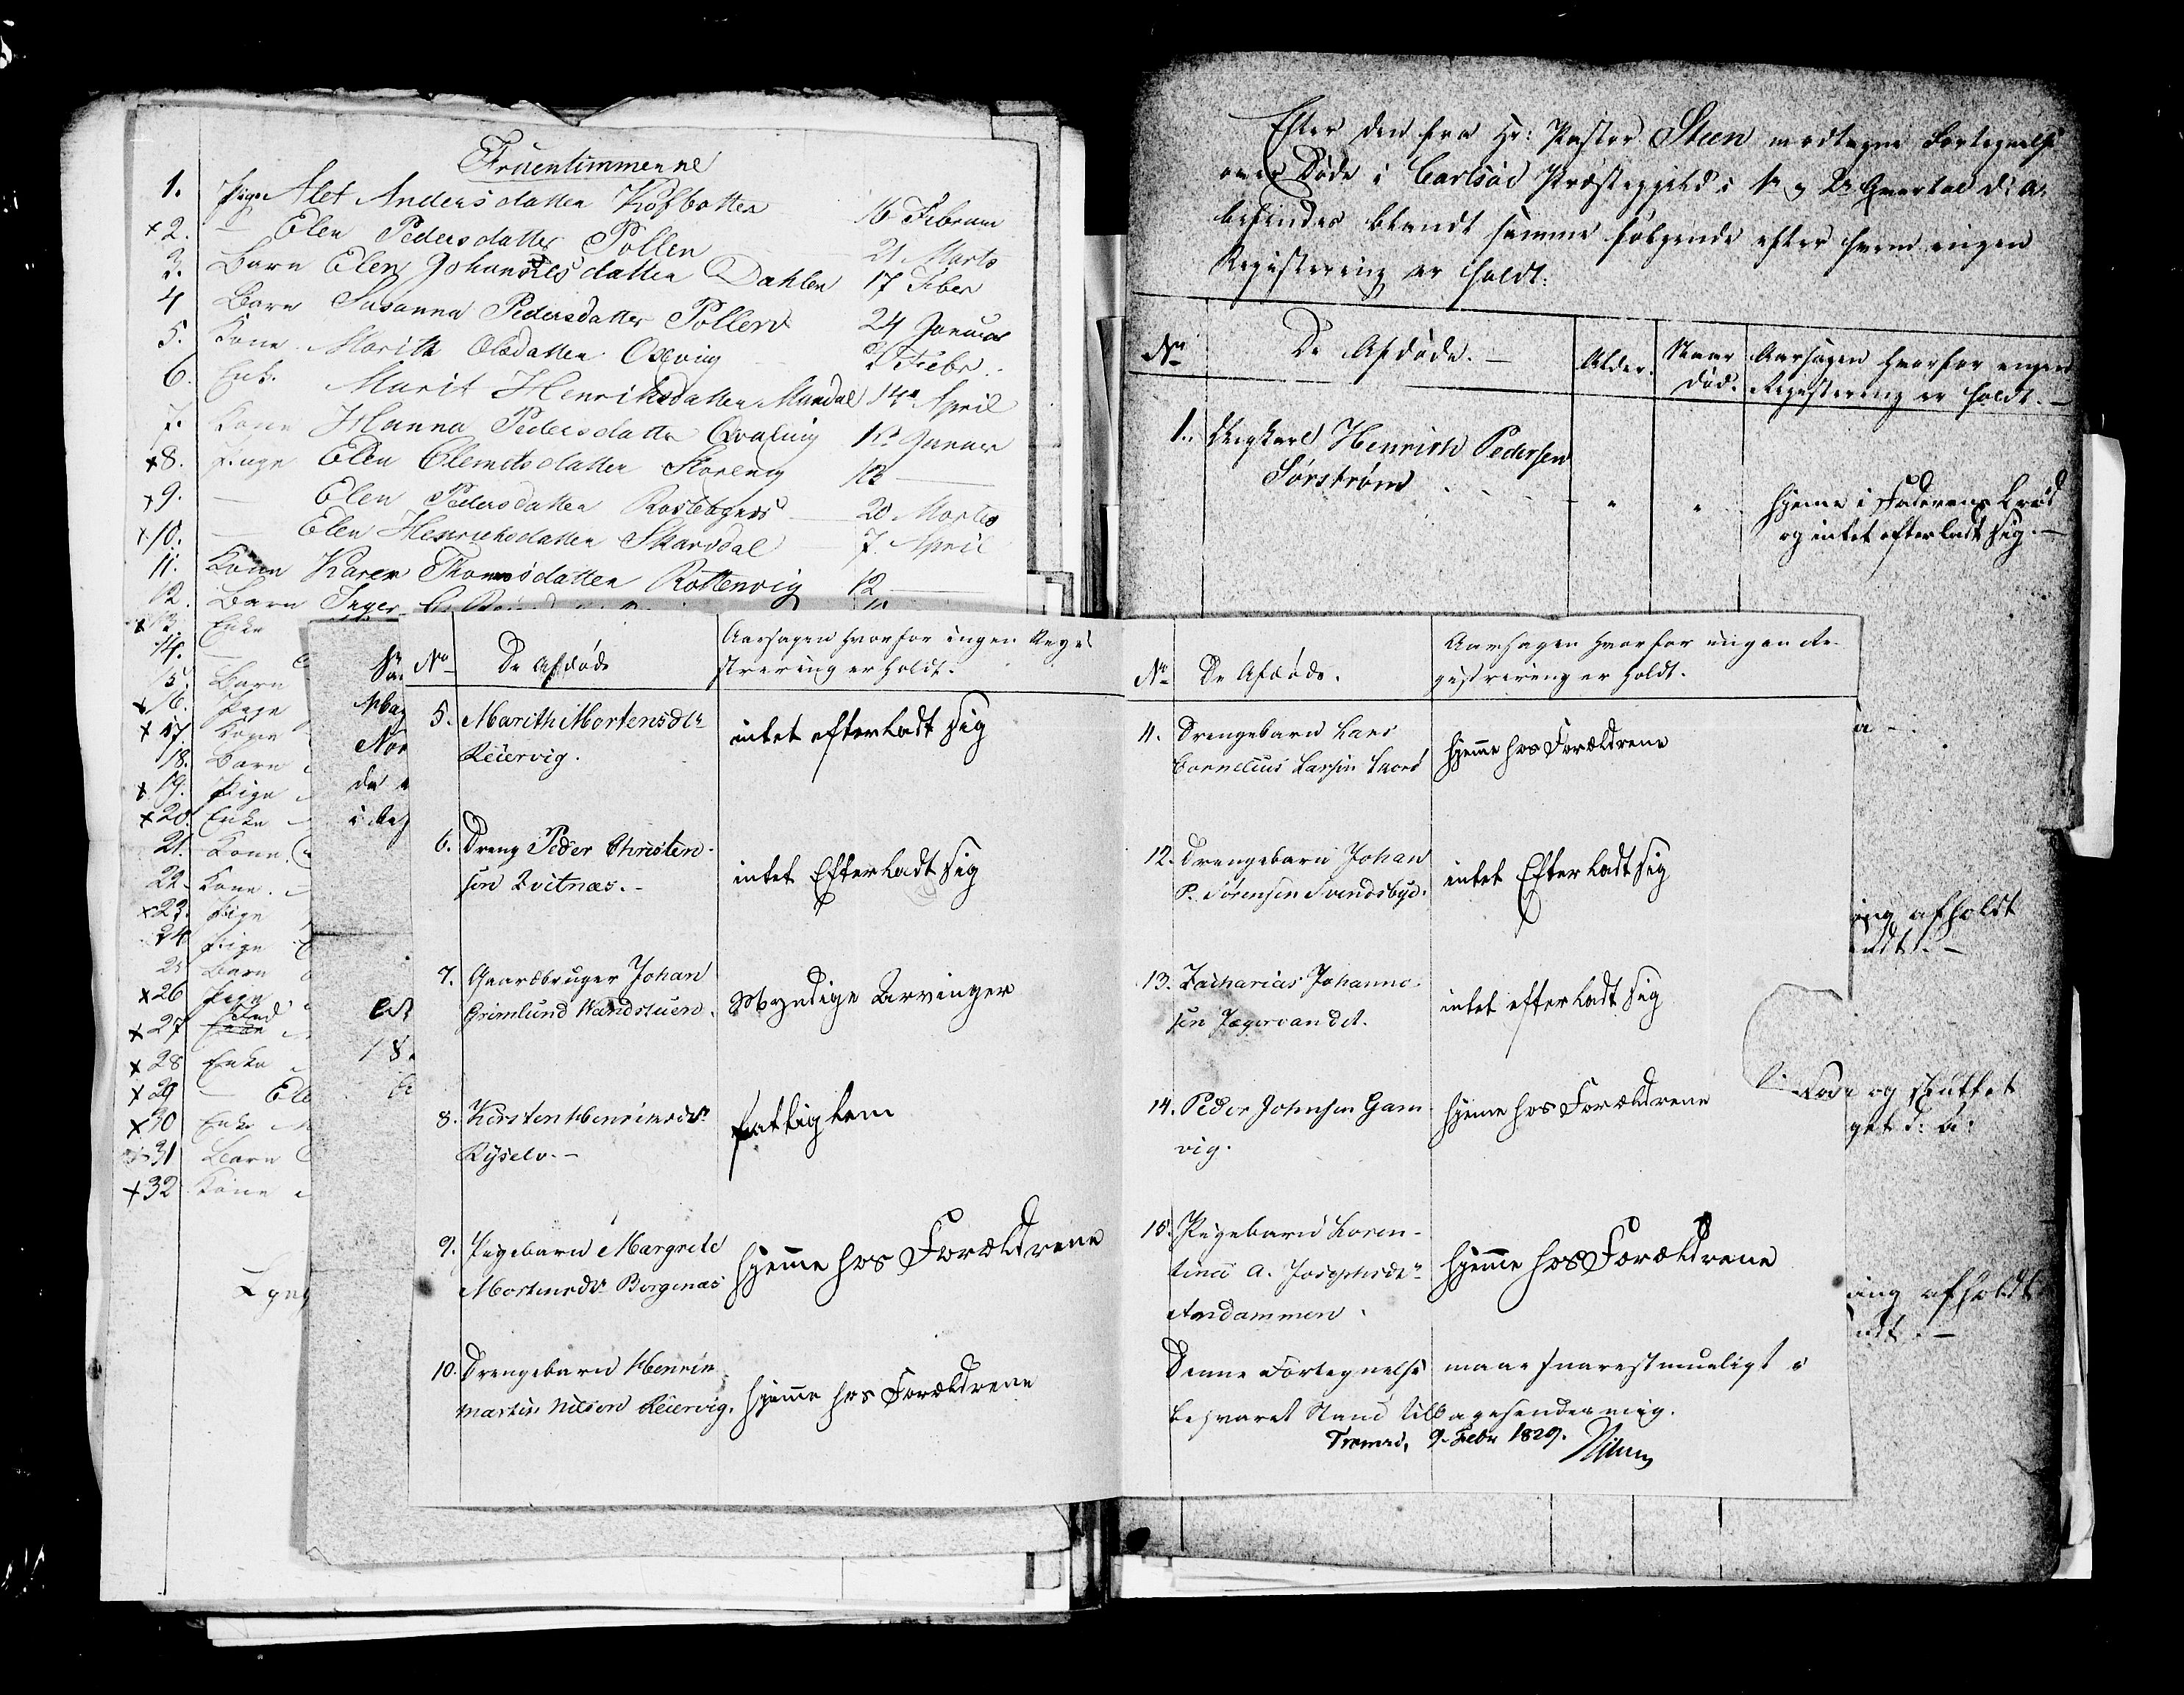 Fruentimmerne
1. Pige Alet Andersdatter Kosbotten 16 Februar
x 2. — Elen Pedersdatter Pollen 21 Marts
3. Barn Elen Johannesdatter Dahlen 17 Feber
4 Barn Susanna Pedersdatter Pollen 24 Januar
5. Kone Marith Olsdatter Oxevig Febr.
6. Enk. Marit Henriksdatter Mandal 14de April
7. Kone Hanna Pedersdatter Qvalvig 12 Januar
x8. Pige Elen Clemetsdatter 12 —
x9. — Elen Pedersdatter 20 Martes
x10. — Elen Henrichsdatter Skarvdal 7. April
11. Kone Karen Thomsdatter Rottenvig 12 —
12. Barn Inger
x 13. Enke
14. —
15. Barn
x 16. Pige
x 17 Kone
18. Barn
x 19. Pige
x 20. Enke
21. Kone
22. Kone
x23. Pige
24. Pige
25 Barn
x26 Pige
x 27
x 28 Enke
x 29 — Ele
x 30 Enke
31 Barn
x32 Kone
Nor
da
18
Efter den fra Hr: Pastor Steen modtagne Fortegnelse
over Døde i Carlsøe Præstegjeld i 1e og 2e Qvartal d: A:
befindes blandt samme følgende efter hvem ingen
Registrering er holdt:
No De Afdøde. — Alder. Naar død. Aarsagen hvorfor ingen
Registering er holdt. —
1. Ungkarl Henrich Pedersen
Sørstrøm " " hjeme i Faderens Brød
og intet efterladt sig. —
No De Afdøde Aarsagen hvorfor ingen Regi
strering er holdt.
5. Marith Mortensdtr
Reiervig. intet efterladt sig
6. Dreng Peder Christen-
sen Zvitnæs. - intet Efterladt sig
7. Gaardbruger Johan
Grimlund Vandstuen. Myndige Arvinger
8. Kirsten Henriksdr
Ryselv. - Fattiglem
9. Pigebarn Margrete
Mortensdr Borgenæs hjemme hos Forældrene
10. Drengebarn Henrik
Martin Nilsen Reiervig. hjemme hos Forældrene
No De Afdøde. Aarsagen hvorfor ingen Re-
gistrering er holdt.
11. Drengebarn Lars
Cornelius Larsen hjemme hos Forældrene
12. Drengebarn Johan
P. Sørensen Svendsbye. intet Efterladt sig
13. Zacharias Johanne-
sen Jægervandet. intet efterladt sig
14. Peder Johnsen Gam
vig. hjeme hos Forældrene
15. Pigebarn Loren-
tine A. Josephsdtr
Andammen. hjemme hos Forældrene
Denne Fortegnelse maae snarest mueligt i
besvaret Stand tilbagesendes mig.
Tromsø, 9. Febr 1829.
ing afholdt
adt. —
og sluttet
get d: A:
ing afholdt
adt. —